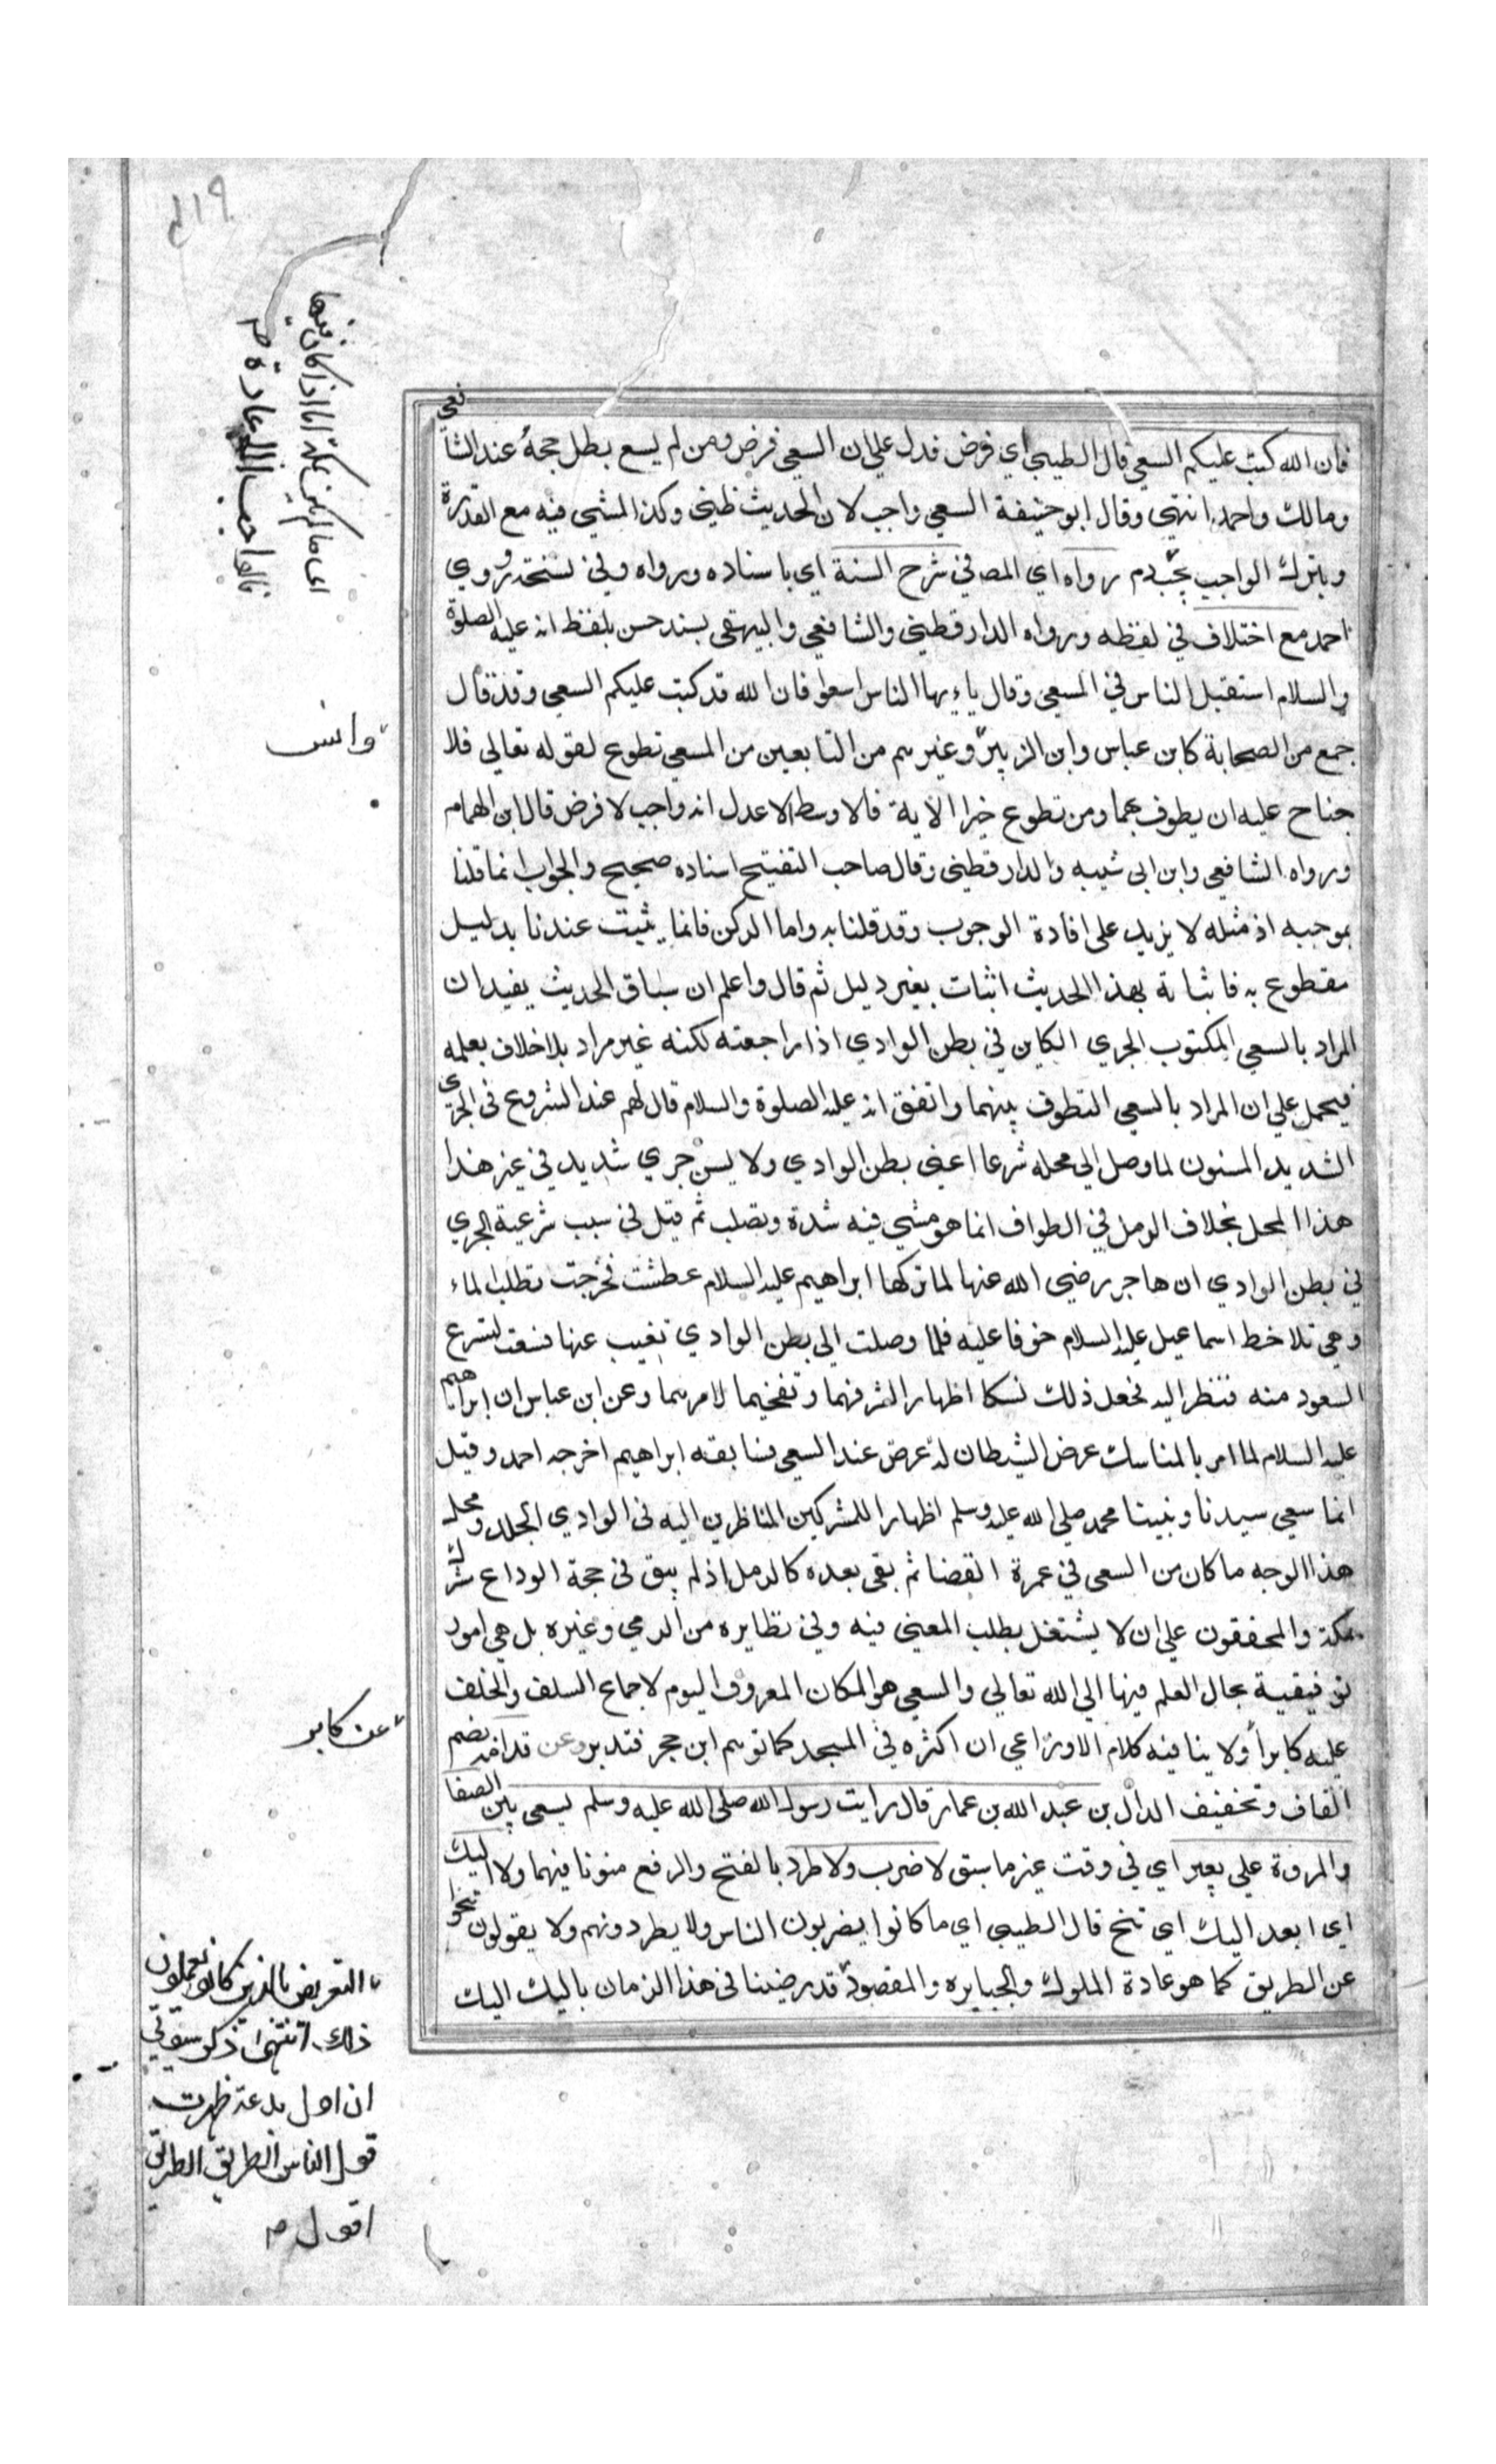 فان الله كتب عليكم السعي قال الطيبي اي فرض فدل علي ان السعي فرض ومن لم يسع بطل حجه عند الشافعي
ومالك واحمد انتهي وقال ابو حنيفة السعي واجب لان الحديث ظني وكذا المشي فيه مع القدرة
وبترك الواجب يجب دم رواه اي المص في شرح السنة اي باسناده ورواه وفي نسخة وروي
احمد مع اختلاف في لفظه ورواه الدارقطني والشافعي والبيهقي بسند حسن بلفظ انه عليه الصلوة
والسلام استقبل الناس في المسعي وقال يا ايها الناس اسعوا فان الله قد كتب عليكم السعي وقد قال
جمع من الصحابة كابن عباس وابن الزبير وغيرهم من التابعين من المسعي تطوع لقوله تعالي فلا
جناح عليه ان يطوف بهما ومن تطوع خيرا الاية فالاوسط الاعدل انه واجب لا فرض قال ابن الهمام
ورواه الشافعي وابن ابي شيبه والدارقطني وقال صاحب التفتيح اسناده صحيح والجواب انما قلنا
بموجبه اذ مثله لا يزيد علي افادة الوجوب وقد قلنا به واما الركن فانما يثبت عندنا بدليل
مقطوع به فاثباته بهذا الحديث اثبات بغير دليل ثم قال واعلم ان سياق الحديث يفيد ان
المراد بالسعي المكتوب الجري الكاين في بطن الوادي اذا راجعته لكنه غير مراد بلا خلاف يعلمه
فيحمل علي ان المراد بالسعي التطوف بينهما واتفق انه عليه الصلوة والسلام قال لهم عند الشروع في الجري
الشديد المسنون لما وصل الي محله شرعا اعني بطن الوادي ولا يسن جري شديد في غير هذا
هذا المحل بخلاف الرمل في الطواف انما هو مشي فيه شدة وتصلب ثم قيل في سبب شرعية الجري
في بطن الوادي ان هاجر رضي الله عنها لما تركها ابراهيم عليه السلام عطشت فخرجت تطلب الماء
وهي تلاحظ اسماعيل عليه السلام خوفا عليه فلما وصلت الي بطن الوادي تغيب عنها فسعت لتسرع
السعود منه فتنظر اليه فجعل ذلك نسكا اظهارا لشرفهما وتفخيما لامرهما وعن ابن عباس ان ابراهيم
عليه السلام لما امر بالمناسك عرض الشيطان له عرض عند السعي فسابقه ابراهيم اخرجه احمد وقيل
انما سعي سيدنا ونبينا محمد صلي الله عليه وسلم اظهارا للمشركين الناظرين اليه في الوادي الجلد ومحمله
هذا الوجه ما كان من السعي في عمرة القضا ثم بقي بعده كالرمل اذ لم يبق في حجة الوداع شرك
بمكة والمحققون علي ان لا يشتغل بطلب المعني فيه وفي نظايره من الرمي وغيره بل هي امور
توقيفية يحال العلم فيها الي الله تعالي والسعي هو المكان المعروف اليوم لاجماع السلف والخلف
عليه كابرا ولا ينافيه كلام الاوزاعي ان اكثره في المسجد كما توهم ابن حجر فتدبر وعن قدامه بضم
القاف وتخفيف الدال بن عبد الله بن عمار قال رايت رسول الله صلي الله عليه وسلم يسعي بين الصفا
والمروة علي بعير اي في وقت غير ما سبق لا ضرب ولا طرد بالفتح والرفع منونا فيهما ولا اليك
اي ابعد اليك اي تنح قال الطيبي اي ما كانوا يضربون الناس ولا يطردونهم ولا يقولون تنحوا
عن الطريق كما هو عادة الملوك والجبابره والمقصود قد رضينا في هذا الزمان باليك اليك
اي ما لم يكن بمكة اما اذا كان فيها
فالواجب الاعادة صح
وانس
عن كابر
التعريض بالذين كانوا يعملون
ذلك انتهي
ان اول بدعة ظهرت
قول الناس الطريق الطريق
اقول صح